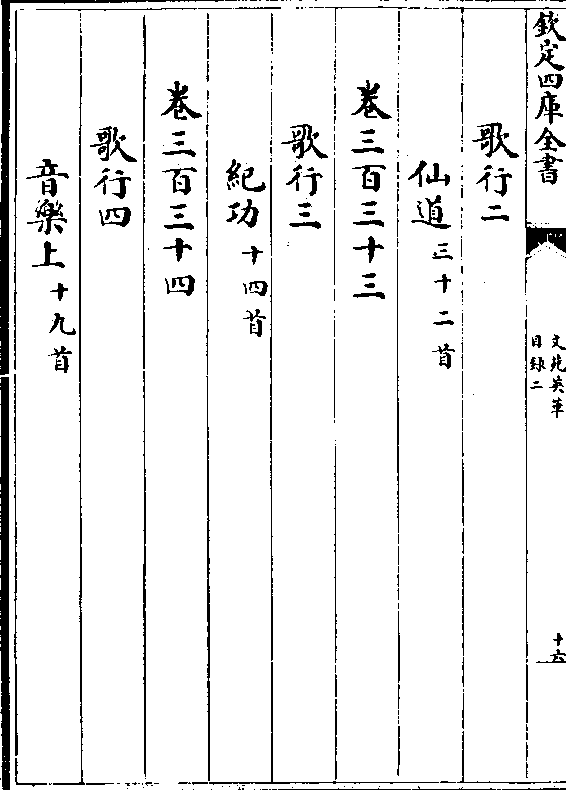 欽定四庫全書
文苑英華
目録二
十六
歌行二
仙道三十二首
卷三百三十三
歌行三
紀功十四首
卷三百三十四
歌行四
音樂上十九首